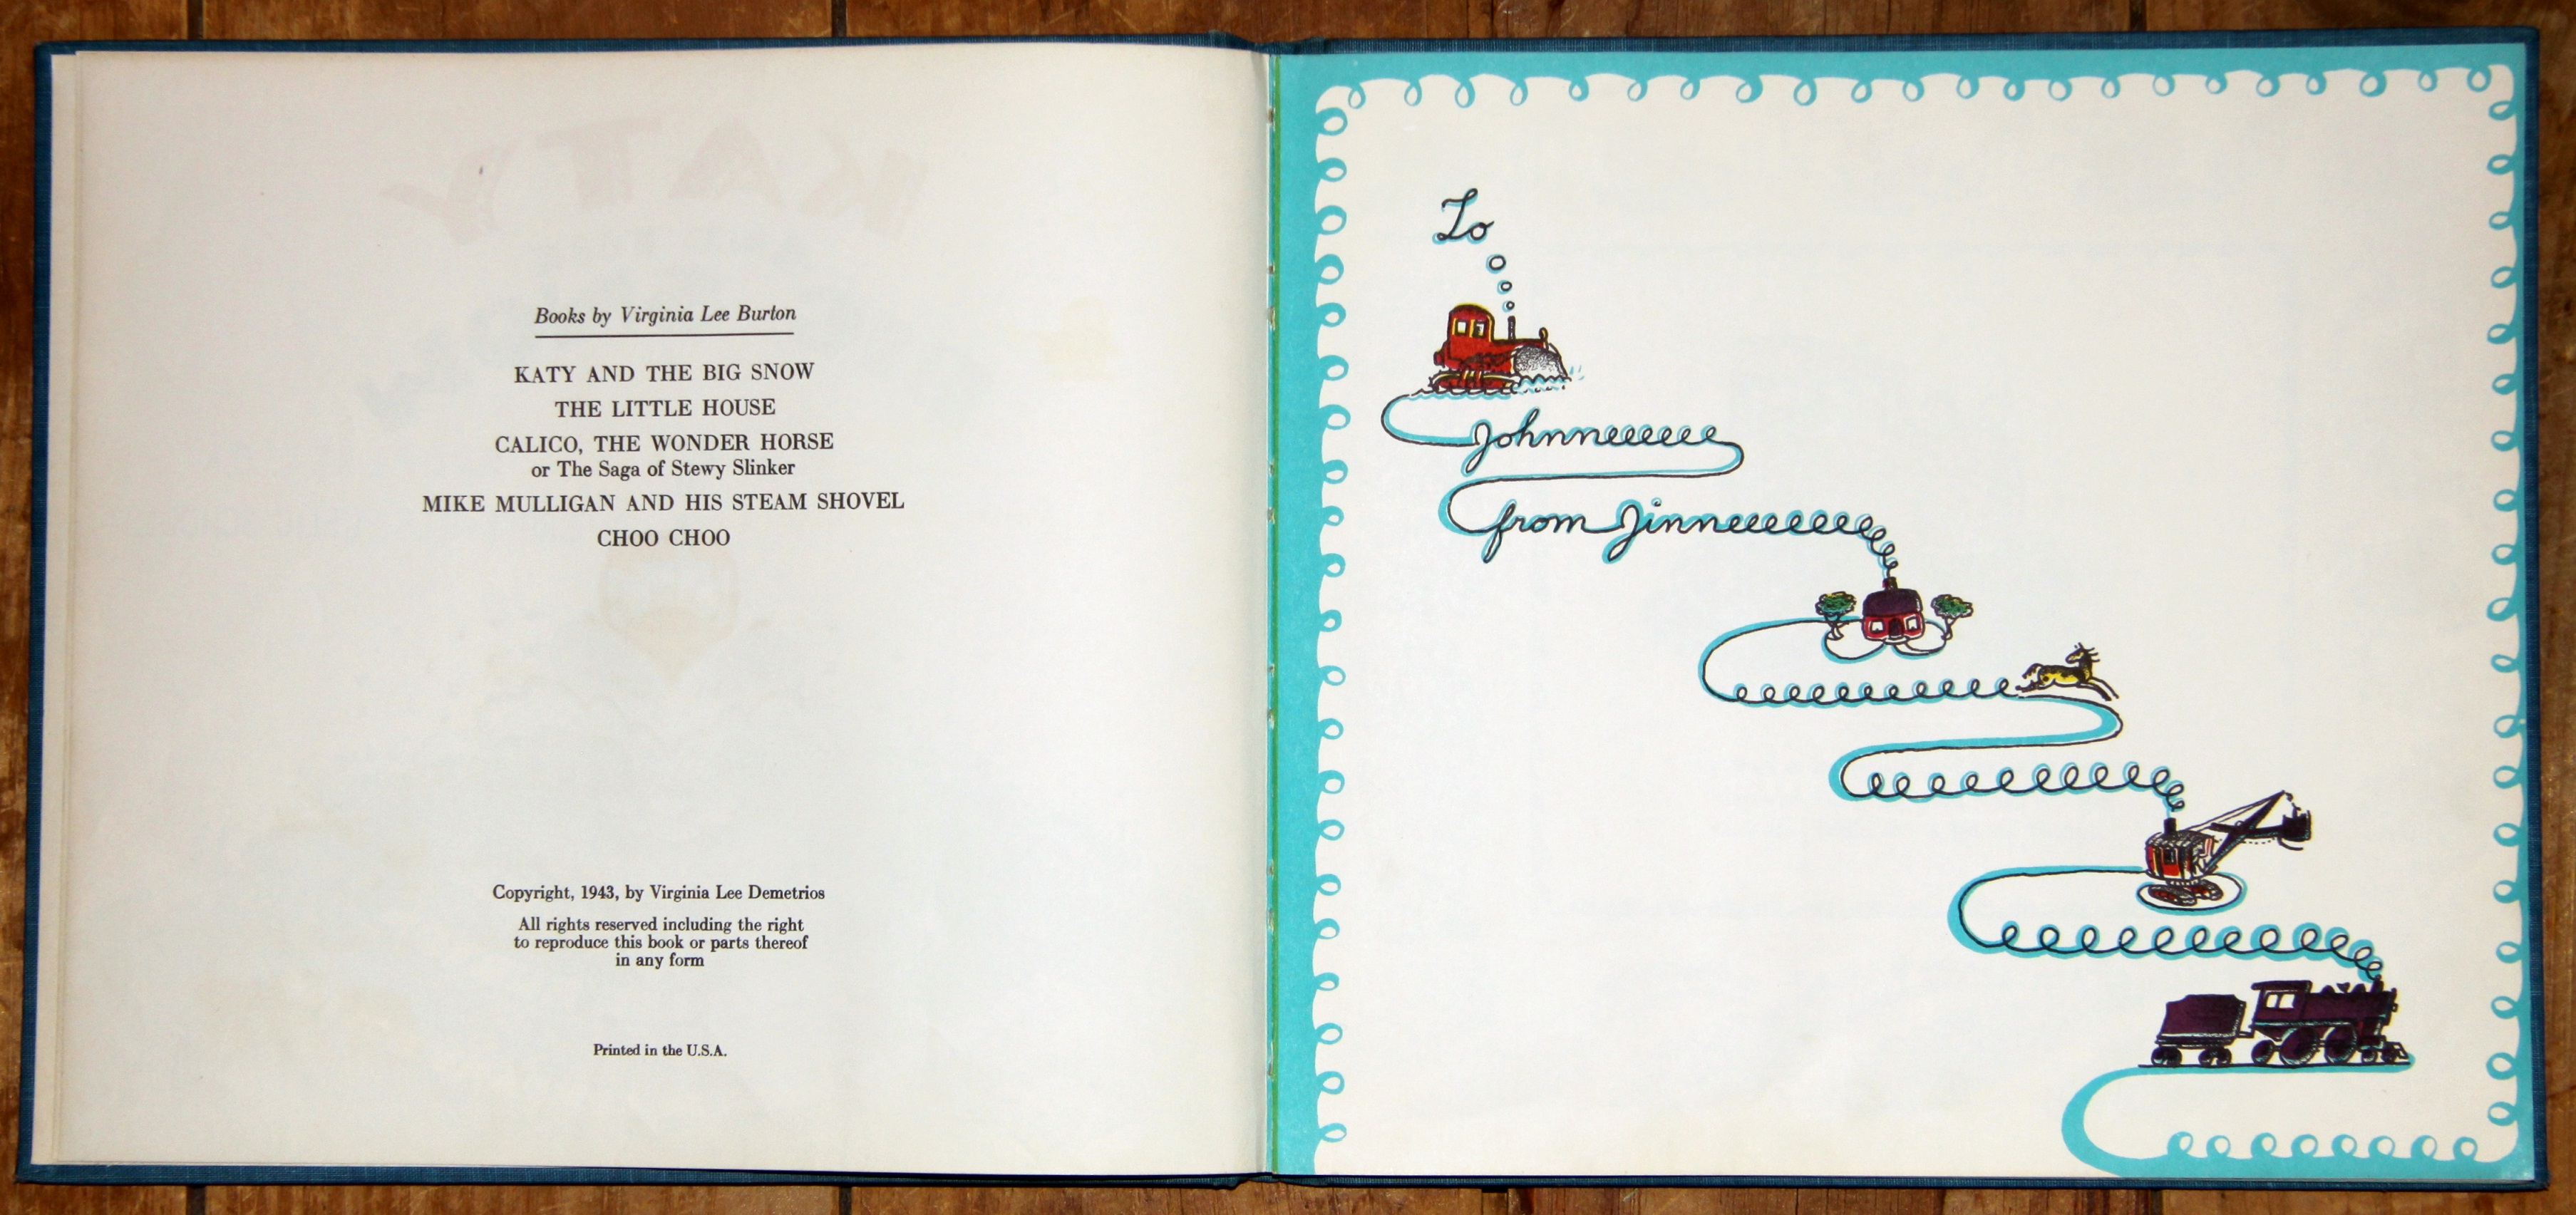 Books by Virginia Lee Burton
KATY AND THE BIG SNOW
THE LITTLE HOUSE
CALICO, THE WONDER HORSE
or The Saga of Stewy Slinker
MIKE MULLIGAN AND HIS STEAM SHOVEL
CHOO CHOO
Copyright, 1943, by Virginia Lee Demetrios
All rights reserved including the right
to reproduce this book or parts thereof
in any form
Printed in the U.S.A.
To
Johnneeeeeee
from Jinneeeeeeee